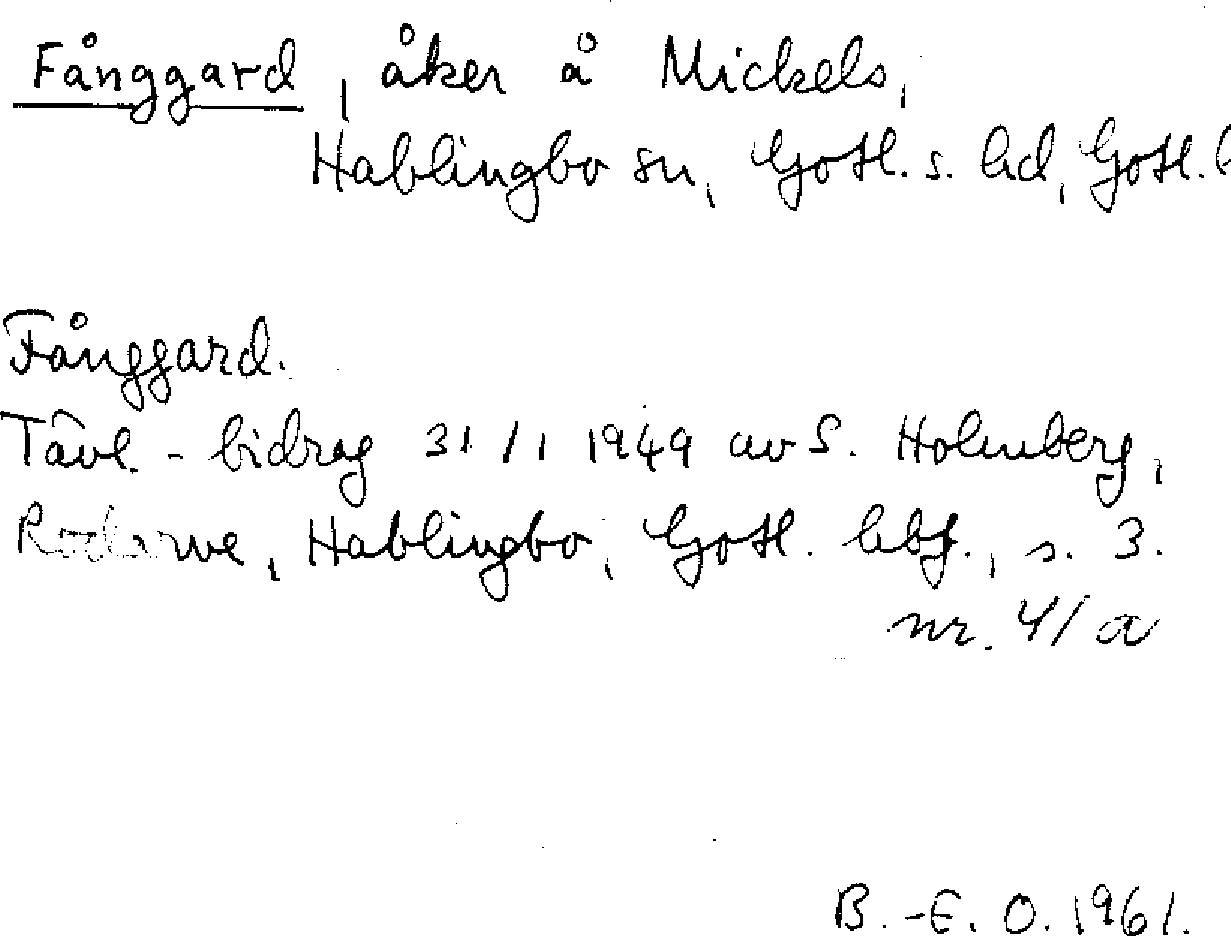 Fånggard, åker å Mickels,
Hablingbo sn, Gotl. s. hd, Gotl. l
Fånggard.
Tävl. - bidrag 31/1 1949 av S. Holmberg,
Rodarve, Hablingbo, Gotl. hbf., s. 3.
nr. 4/a
B.-E. O. 1961.